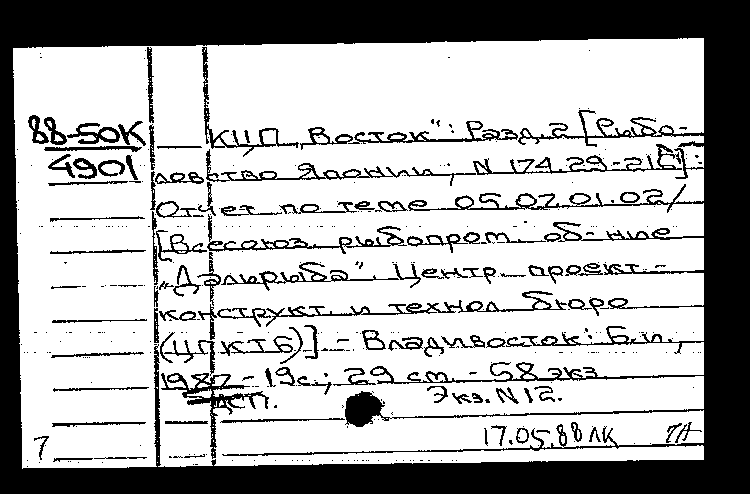 88-50К
4901
КЦП „Восток“: Разд. 2 [Рыбо-
ловство Японии; N 174.29-21С]:
Отчет по теме 05.02.01.02/
[Всесоюз. рыбопром. об-ние
„Дальрыба“. Центр. проект.-
конструкт. и технол. бюро
(ЦПКТБ)]. - Владивосток: Б.и.,
1987 - 19с.; 29 см. - 58 экз.
ДСП. Экз. N 12.
17.05.88 ЛК
7